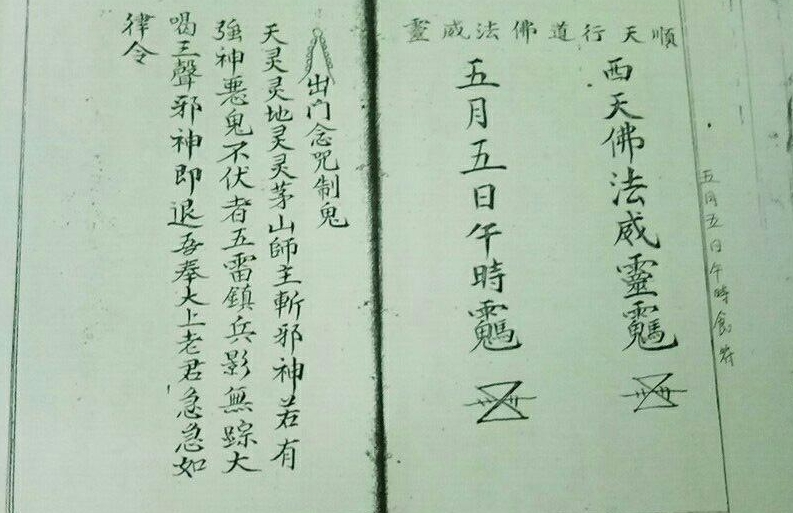 五月五日午時食符
順天行道佛法威靈
西天佛法威靈
五月五日午時
出门念咒制鬼
天灵灵地灵灵茅山師主斬邪神若有
強神悪鬼不伏者五雷鎮兵影無踪大
喝三聲邪神即退吾奉大上老君急急如
律令